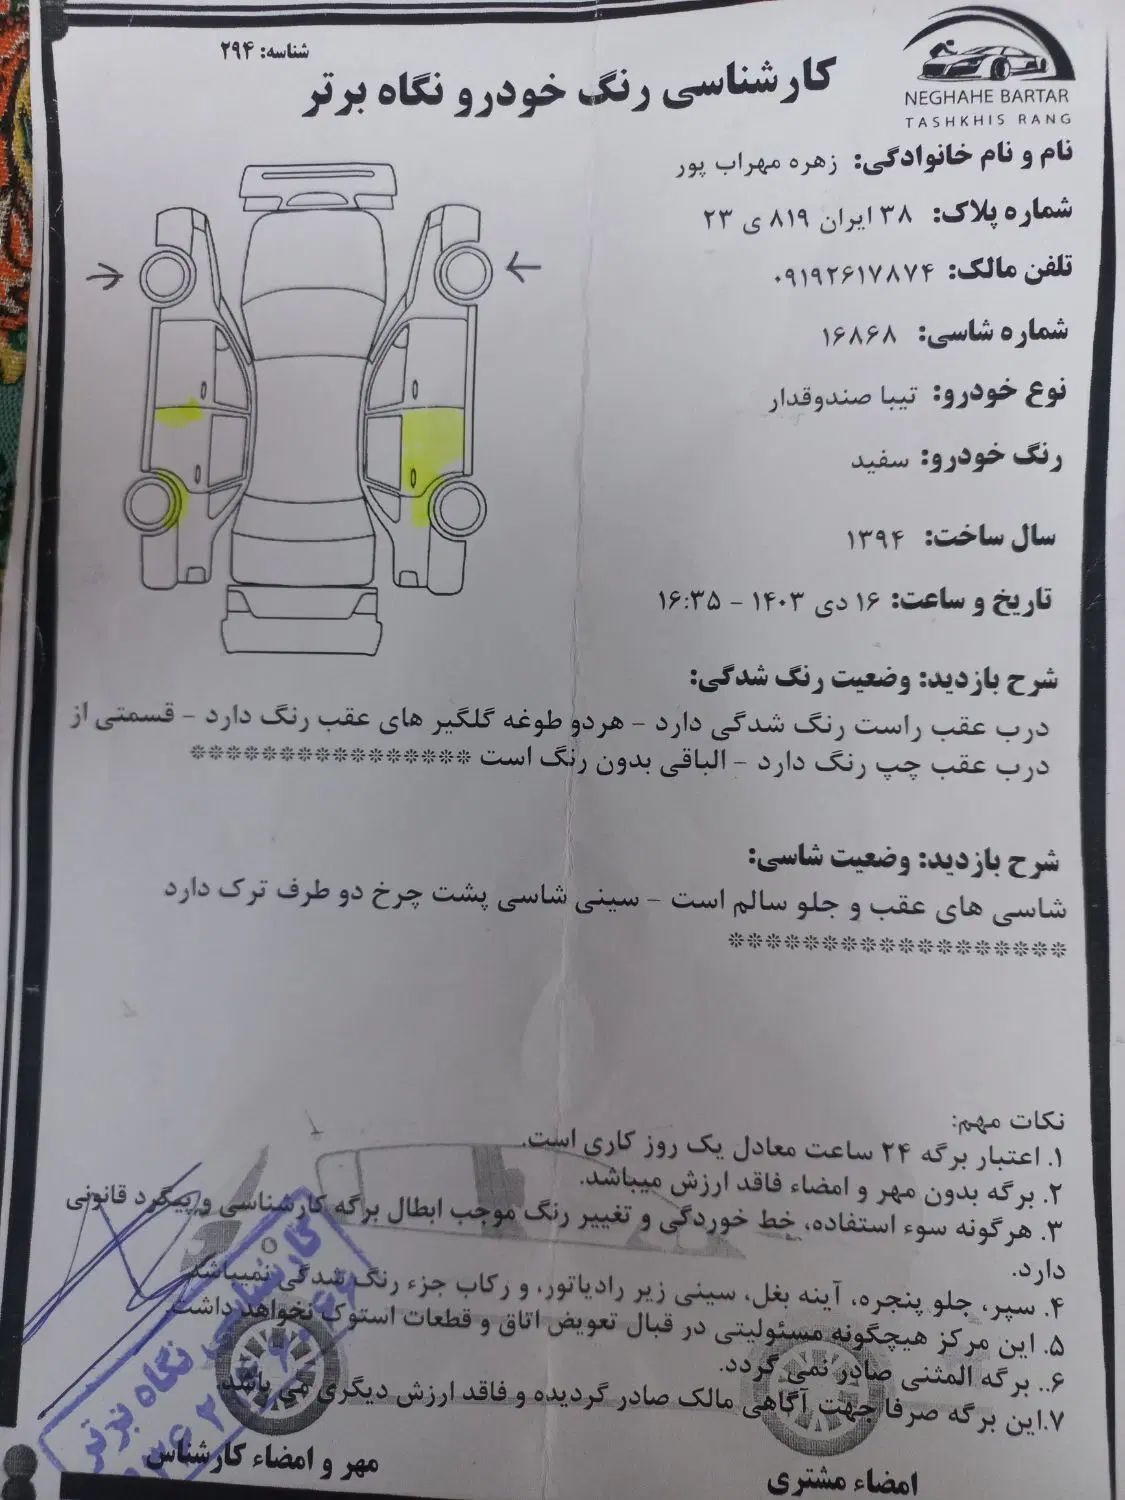 شناسه: ۲۹۴
NEGHAHE BARTAR
TASHKHIS RANG
کارشناسی رنگ خودرو نگاه برتر
نام و نام خانوادگی: زهره مهراب پور
شماره پلاک: ۳۸ ایران ۸۱۹ ی ۲۳
تلفن مالک: ۰۹۱۹۲۶۱۷۸۷۴
شماره شاسی: ۱۶۸۶۸
نوع خودرو: تیبا صندوقدار
رنگ خودرو: سفید
سال ساخت: ۱۳۹۴
تاریخ و ساعت: ۱۶ دی ۱۴۰۳ - ۱۶:۳۵
شرح بازدید: وضعیت رنگ شدگی:
درب عقب راست رنگ شدگی دارد - هردو طوغه گلگیر های عقب رنگ دارد - قسمتی از
درب عقب چپ رنگ دارد - الباقی بدون رنگ است ****************
شرح بازدید: وضعیت شاسی:
شاسی های عقب و جلو سالم است - سینی شاسی پشت چرخ دو طرف ترک دارد
*******************
نکات مهم:
۱. اعتبار برگه ۲۴ ساعت معادل یک روز کاری است.
۲. برگه بدون مهر و امضاء فاقد ارزش میباشد.
۳. هرگونه سوء استفاده، خط خوردگی و تغییر رنگ موجب ابطال برگه کارشناسی و پیگرد قانونی
دارد.
۴. سپر، جلو پنجره، آینه بغل، سینی زیر رادیاتور، و رکاب جزء رنگ شدگی نمیباشد.
۵. این مرکز هیچگونه مسئولیتی در قبال تعویض اتاق و قطعات استوک نخواهد داشت.
۶.. برگه المثنی صادر نمی گردد.
۷.این برگه صرفا جهت آگاهی مالک صادر گردیده و فاقد ارزش دیگری می باشد.
مهر و امضاء کارشناس
امضاء مشتری
نگاه برتر